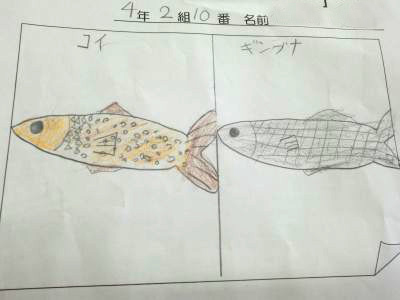 4年 2組 10番 名前
コイ
ギンブナ